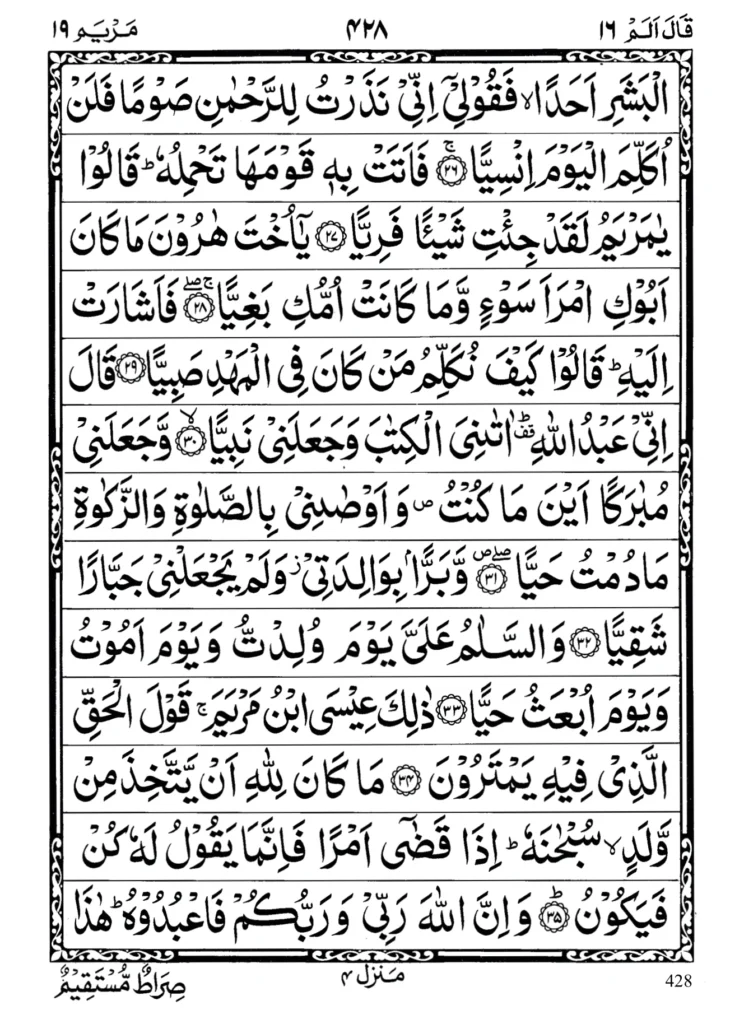 قَالَ اَلَمْ ١٦ ٤٢٨ مَرْيَم ١٩
الْبَشَرِ اَحَدًا ۙ فَقُوْلِيْۤ اِنِّيْ نَذَرْتُ لِلرَّحْمٰنِ صَوْمًا فَلَنْ
اُكَلِّمَ الْيَوْمَ اِنْسِيًّا ۚ‏﴿۲۶﴾ فَاَتَتْ بِهٖ قَوْمَهَا تَحْمِلُهٗ ؕ قَالُوْا
يٰمَرْيَمُ لَقَدْ جِئْتِ شَيْـًٔا فَرِيًّا ﴿۲۷﴾ يٰۤاُخْتَ هٰرُوْنَ مَا كَانَ
اَبُوْكِ امْرَاَ سَوْءٍ وَّمَا كَانَتْ اُمُّكِ بَغِيًّا ۖۚ ﴿۲۸﴾ فَاَشَارَتْ
اِلَيْهِ ؕ قَالُوْا كَيْفَ نُكَلِّمُ مَنْ كَانَ فِي الْمَهْدِ صَبِيًّا ﴿۲۹﴾ قَالَ
اِنِّيْ عَبْدُ اللّٰهِ ؕقف اٰتٰىنِيَ الْكِتٰبَ وَجَعَلَنِيْ نَبِيًّا ۙ ﴿۳۰﴾ وَّجَعَلَنِيْ
مُبٰرَكًا اَيْنَ مَا كُنْتُ ۪ وَاَوْصٰىنِيْ بِالصَّلٰوةِ وَالزَّكٰوةِ
مَا دُمْتُ حَيًّا ۪ۖ ﴿۳۱﴾ وَّبَرًّۢا بِوَالِدَتِيْ ؗ وَلَمْ يَجْعَلْنِيْ جَبَّارًا
شَقِيًّا ﴿۳۲﴾ وَالسَّلٰمُ عَلَيَّ يَوْمَ وُلِدْتُّ وَيَوْمَ اَمُوْتُ
وَيَوْمَ اُبْعَثُ حَيًّا ﴿۳۳﴾ ذٰلِكَ عِيْسَى ابْنُ مَرْيَمَ ۚ قَوْلَ الْحَقِّ
الَّذِيْ فِيْهِ يَمْتَرُوْنَ ﴿۳۴﴾ مَا كَانَ لِلّٰهِ اَنْ يَّتَّخِذَ مِنْ
وَّلَدٍ ۙ سُبْحٰنَهٗ ؕ اِذَا قَضٰۤى اَمْرًا فَاِنَّمَا يَقُوْلُ لَهٗ كُنْ
فَيَكُوْنُ ؕ ﴿۳۵﴾ وَاِنَّ اللّٰهَ رَبِّيْ وَرَبُّكُمْ فَاعْبُدُوْهُ ؕ هٰذَا
428 مَنْزِل ٤ صِرَاطٌ مُّسْتَقِيْمٌ